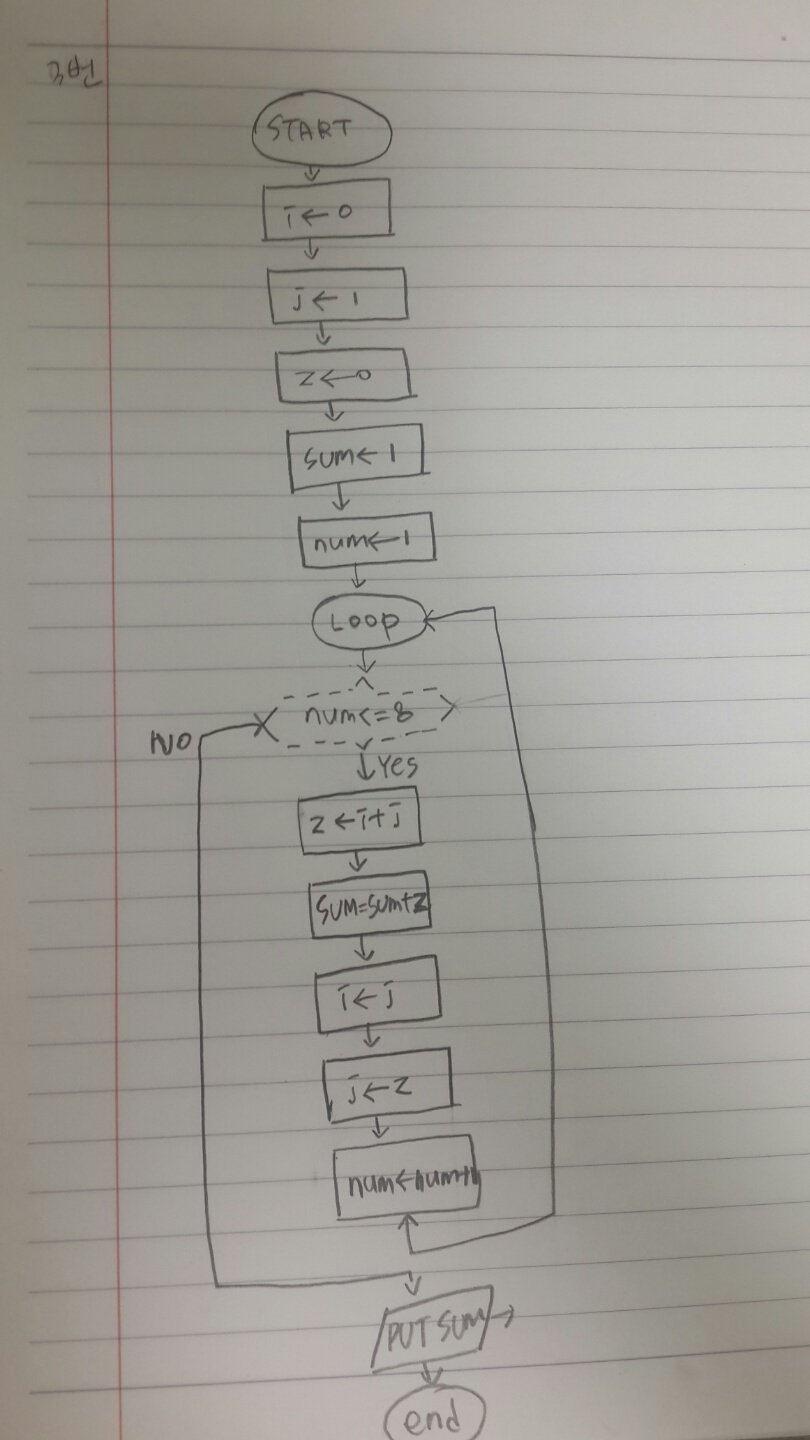 3번
START
i ← 0
j ← 1
z ← 0
sum ← 1
num ← 1
Loop
num <= 8
NO
Yes
z ← i + j
sum = sum + z
i ← j
j ← z
num ← num + 1
PUT SUM
end